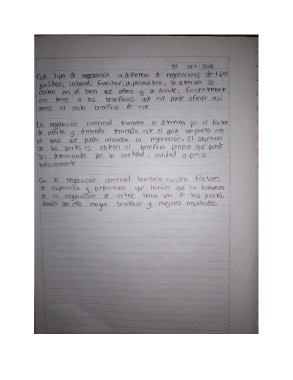 01 oct 2018
Este tipo de negociación a diferencia de negociaciones de tipo
jurídico, laboral, familiar, diplomática, la atención se
centra en el bien que ofrece y se discute, frecuentemente
en torno a los beneficios que ese puede ofrecer así
como el costo beneficio de ese
La negociación comercial también se determina por el factor
de oferta y demanda teniendo este el gran impacto en
el tema que puede abordar la negociación. El objetivo
de las partes es obtener el beneficio propio que puede
ser determinado por la cantidad, calidad o precio
básicamente
En la negociación comercial también existen factores
de experiencia y preparación que harán que la balanza
de la negociación se incline hacia una de las partes,
dando con ello mayor beneficio y mejores resultados.